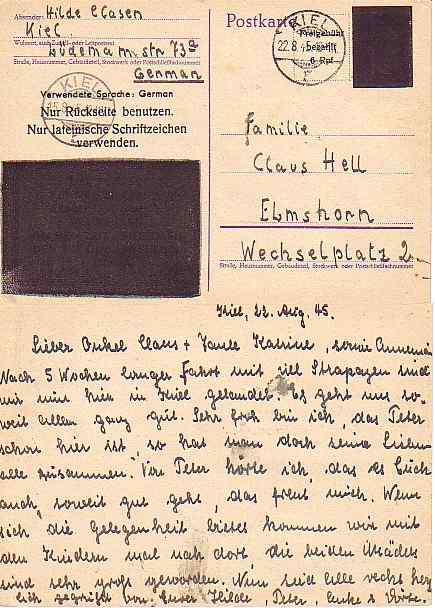 Absender: Hilde Clasen
Kiel.
Wohnort, auch Zustell- oder Leitpostamt
Lüdemannstr 73a
Straße, Hausnummer, Gebäudeteil, Stockwerk oder Postschließfachnummer
German
Verwendete Sprache: German
Nur Rückseite benutzen.
Nur lateinische Schriftzeichen
verwenden.
KIEL
Postkarte
KIEL
22.8.45
Freigebühr
bezahlt
6 Rpf
Familie
Claus Hell
Elmshorn
Wechselplatz 2.
Straße, Hausnummer, Gebäudeteil, Stockwerk oder Postschließfachnummer
Kiel, 22. Aug. 45.
Lieber Onkel Claus + Tante Katrine, sowie Annemie
Nach 5 Wochen langer Fahrt mit viel Strapazen sind
wir nun hier in Kiel gelandet. Es geht uns so-
weit allen ganz gut. Sehr froh bin ich, das Peter
schon hier ist, so hat man doch seine Lieben
alle zusammen. Von Peter hörte ich, das es Euch
auch soweit gut geht, das freut mich. Wenn
sich die Gelegenheit bietet kommen wir mit
den Kindern mal nach dort die beiden Mädels
sind sehr groß geworden. Nun seid alle rechts herz
lich gegrüßt von Eurer Hilde, Peter, Anke &